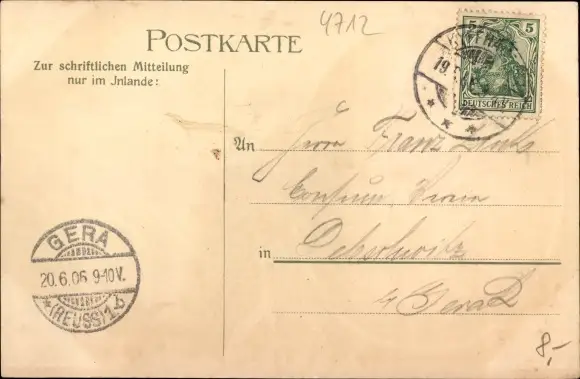 4712
POSTKARTE
Zur schriftlichen Mitteilung
nur im Jnlande:
5 5
DEUTSCHES REICH
19.
An Herrn Franz
Consum Verein
in
b/Gera
GERA
20.6.06 9-10V.
* (REUSS) 1b
8,-